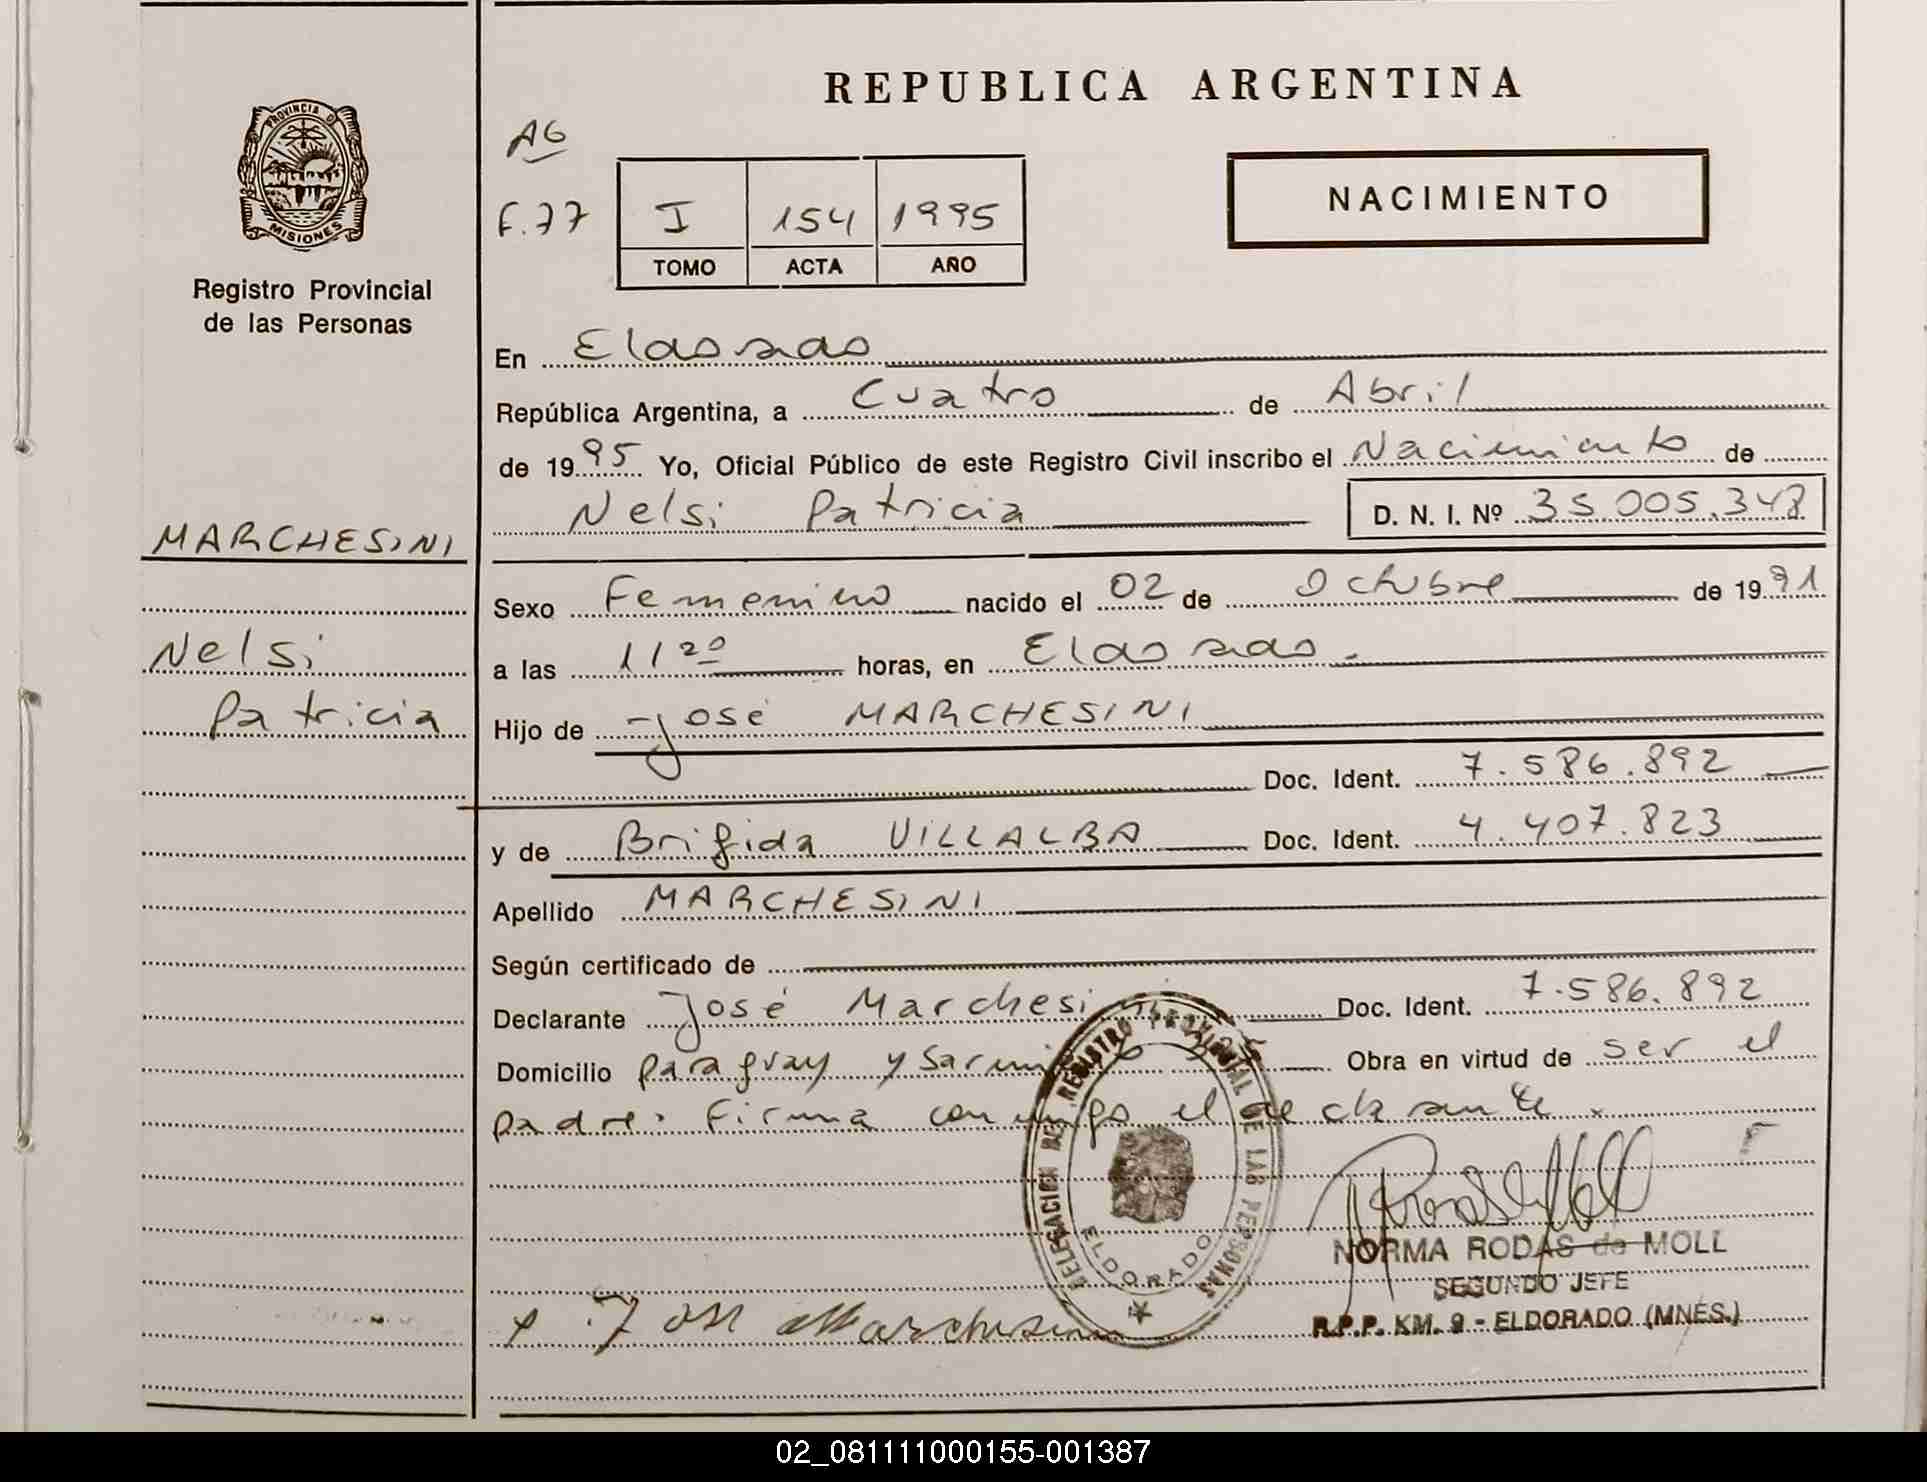 REPUBLICA ARGENTINA
PROVINCIA D
MISIONES
Registro Provincial
de las Personas
AG
F.77
I 154 1995
TOMO ACTA AÑO
NACIMIENTO
En Eldorado
República Argentina, a Cuatro de Abril
de 1995 Yo, Oficial Público de este Registro Civil inscribo el Nacimiento de
Nelsi Patricia D. N. I. Nº 35.005.348
MARCHESINI
Sexo Femenino nacido el 02 de Octubre de 1991
Nelsi
a las 11 20 horas, en Eldorado.
Patricia
Hijo de José MARCHESINI
Doc. Ident. 7.586.892
y de Brígida VILLALBA Doc. Ident. 4.407.823
Apellido MARCHESINI
Según certificado de
Declarante José Marchesini Doc. Ident. 7.586.892
Domicilio Paraguay y Sarmiento Obra en virtud de ser el
padre. Firma conmigo el declarante x
DELEGACION DEL REGISTRO PROVINCIAL DE LAS PERSONAS
ELDORADO
NORMA RODAS de MOLL
SEGUNDO JEFE
R.P.P. KM. 9 - ELDORADO (MNES.)
x José Marchesini
02_081111000155-001387